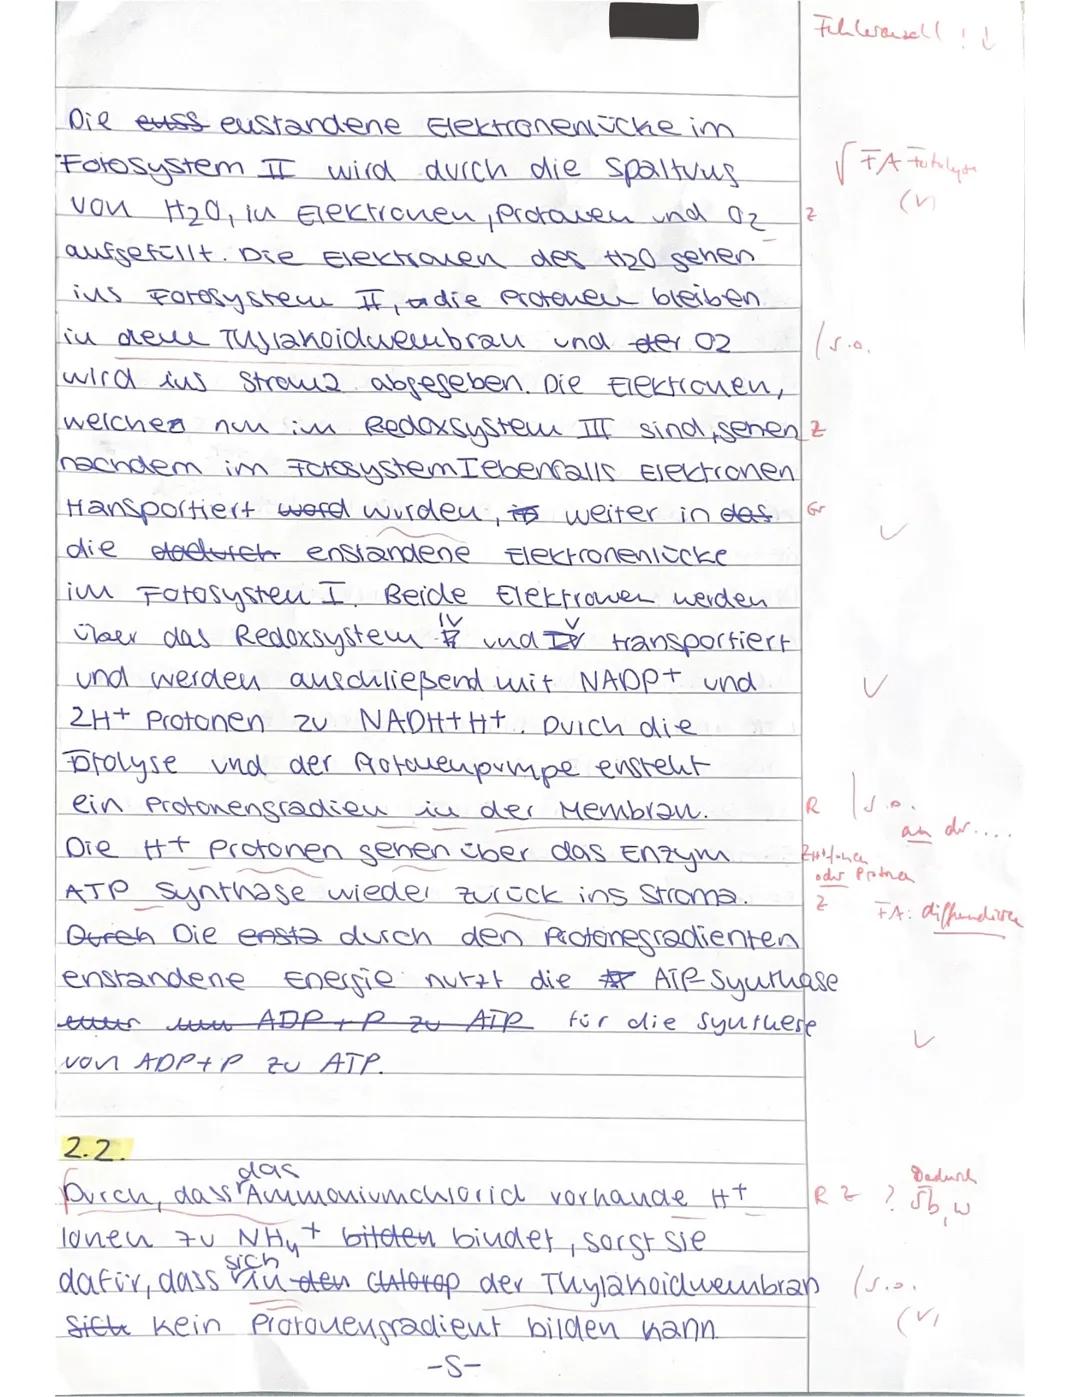 Fehleranzahl ! ↓
Die euss eustandene Elektronenlücke im
Fotosystem II wird durch die Spaltung √ FA Fotolyse
von H2O, in Elektronen, Protonen und O2 Z (√)
aufgefüllt. Die Elektronen des H2O gehen
ins Fotosystem II, die Protonen bleiben
in dem Thylakoidmembran und der O2 /s.o.
wird ins Stroma abgegeben. Die Elektronen,
welches nun im Redoxsystem III sind, gehen Z
nachdem im Fotosystem I ebenfalls Elektronen
transportiert word wurden, weiter in das Gr √
die dadurch enstandene Elektronenlücke
im Fotosystem I. Beide Elektronen werden
über das Redoxsystem IV und V transportiert
und werden anschließend mit NADP+ und √
2H+ Protonen zu NADH+H+. Durch die
Fotolyse und der Protonenpumpe ensteht
ein Protonengradien in der Membran. R /s.o. an der....
Die H+ Protonen gehen über das Enzym oder Protonen
ATP Synthase wieder zurück ins Stroma. Z FA: diffundieren
Durch Die ensta durch den Protonegradienten
enstandene Energie nutzt die ATP-Synthase
ADP + P zu ATP für die Synthese √
von ADP+P zu ATP.
2.2.
Durch, dass das Ammoniumchlorid vorhande H+ R Z ? Dadurch Sb, w
Ionen zu NH4+ bilden bindet, sorgt sie
dafür, dass sich in den Chlorop der Thylakoidmembran /s.o.
sich kein Protonengradient bilden kann (√)
-5-